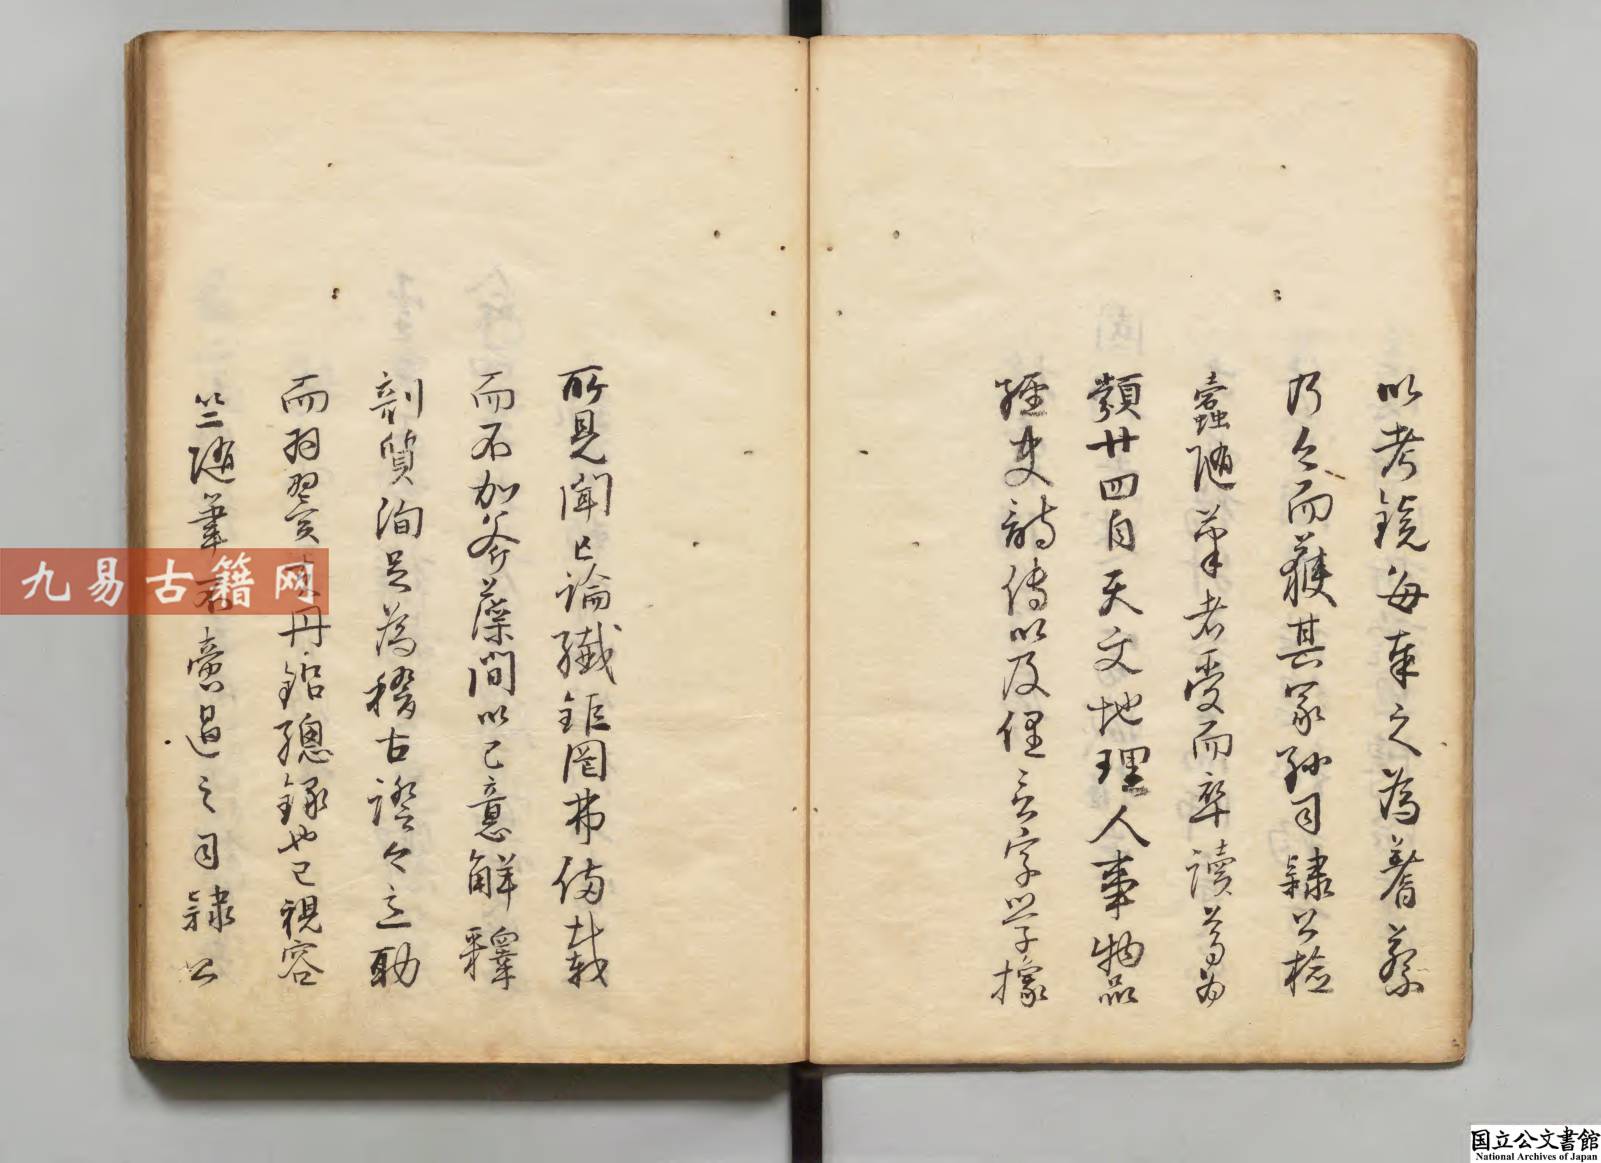 以考鏡每奉之為蓍蔡
乃今而獲其冢孫司隸公檢
蠹隨筆者受而卒讀焉為
類廿四自天文地理人事物品
經史詩傳以及俚言字學據
所見聞已論纖鉅罔弗備載
而不加斧藻間以己意解釋
剖質洵足為稽古證今之助
而羽翼 丹鉛總錄也已視容
齋隨筆不啻過之司隸公
九易古籍网
国立公文書館
National Archives of Japan